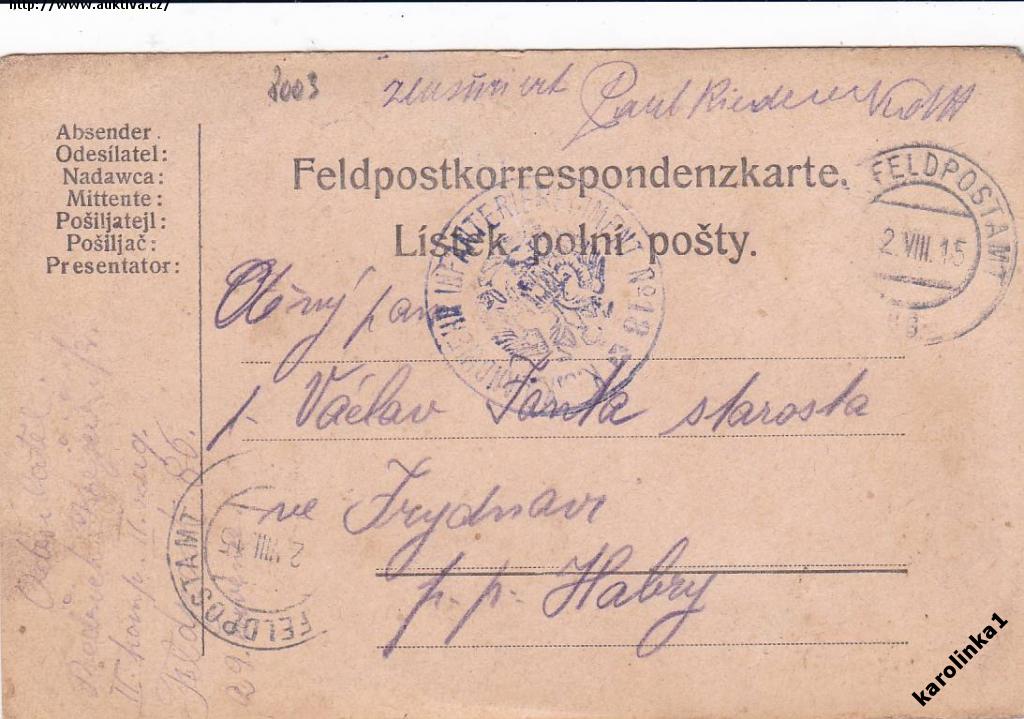 http://www.auktiva.cz/
8003
zensuriert Paul Riederer
Absender.
Odesílatel:
Nadawca:
Mittente:
Pošiljatejl:
Pošiljač:
Presentator:
Feldpostkorrespondenzkarte.
Lístek polní pošty.
FELDPOSTAMT
2. VIII. 15
INFANTERIEREGIMENT No 18
Ctěný pan
p. Václav Janka starosta
ve Frydnavě
p. p. Habry
FELDPOSTAMT
2. VIII. 15
Odesílatel:
II. komp. II. zug.
Feldpost 86.
29.
karolinka1